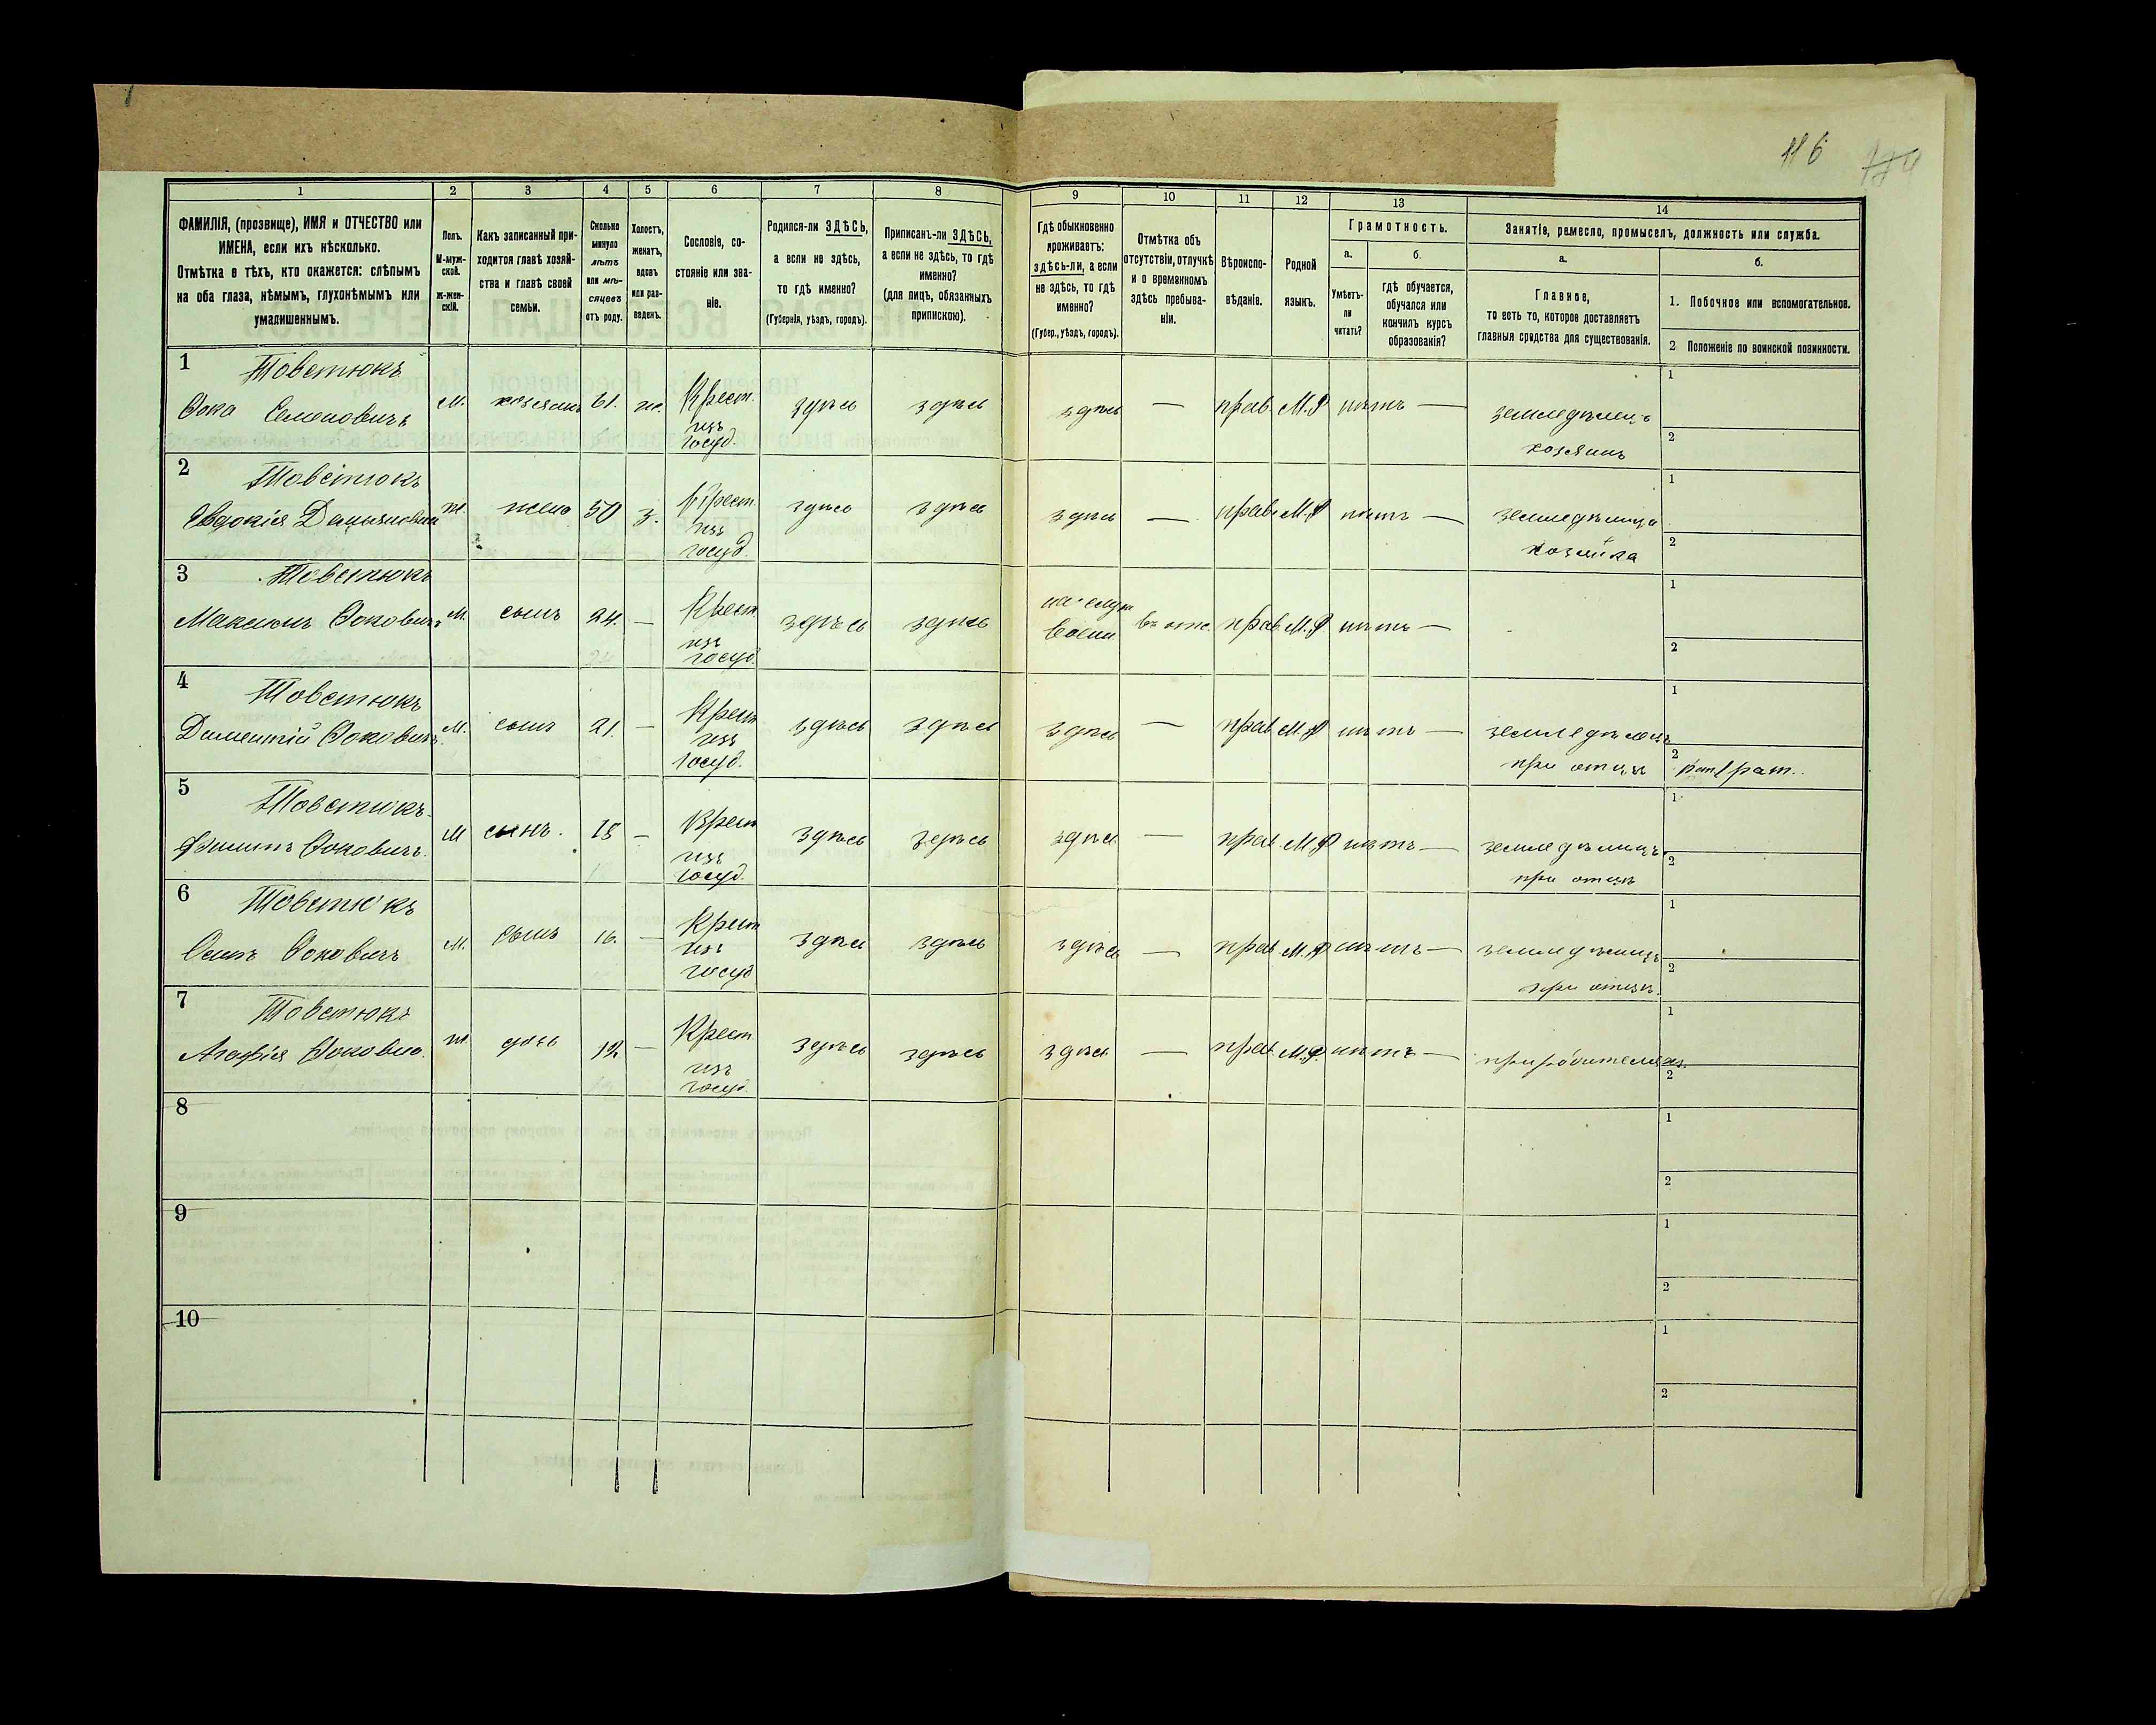 116
1
2
3
4
5
6
7
8
9
10
11
12
13
14
ФАМИЛІЯ, (прозвище), ИМЯ и ОТЧЕСТВО или
ИМЕНА, если ихъ нѣсколько.
Отмѣтка о тѣхъ, кто окажется: слѣпымъ
на оба глаза, нѣмымъ, глухонѣмымъ или
умалишеннымъ.
Полъ.
М-муж-
ской.
Ж-жен-
скій.
Какъ записанный при-
ходится главѣ хозяй-
ства и главѣ своей
семьи.
Сколько
минуло
лѣтъ
или мѣ-
сяцевъ
отъ роду.
Холостъ,
женатъ,
вдовъ
или раз-
веденъ.
Сословіе, со-
стояніе или зва-
ніе.
Родился-ли ЗДѢСЬ,
а если не здѣсь,
то гдѣ именно?
(Губернія, уѣздъ, городъ).
Приписанъ-ли ЗДѢСЬ,
а если не здѣсь, то гдѣ
именно?
(для лицъ, обязанныхъ
припискою).
Гдѣ обыкновенно
проживаетъ:
здѣсь-ли, а если
не здѣсь, то гдѣ
именно?
(Губер., уѣздъ, городъ).
Отмѣтка объ
отсутствіи, отлучкѣ
и о временномъ
здѣсь пребыва-
ніи.
Вѣроиспо-
вѣданіе.
Родной
языкъ.
Грамотность.
а.
Умѣетъ-
ли
читать?
б.
гдѣ обучается,
обучался или
кончилъ курсъ
образованія?
Занятіе, ремесло, промыселъ, должность или служба.
а.
Главное,
то есть то, которое доставляетъ
главныя средства для существованія.
б.
1. Побочное или вспомогательное.
2 Положеніе по воинской повинности.
1 Товстюкъ
Ѳока Семеновичъ М. хозяинъ 61. ж. Крест. изъ госуд. здѣсь здѣсь здѣсь — прав. М.Р нѣтъ — земледѣлецъ
хозяинъ
1
2
2 Товстюкъ
Евдокія Демьяновна Ж. жена 50 з. Крест. изъ госуд. здѣсь здѣсь здѣсь — прав. М.Р нѣтъ — земледѣлица
хозяйка
1
2
3 Товстюкъ
Максимъ Ѳоковичъ М. сынъ 24. — Крест изъ госуд. здѣсь здѣсь прав. М.Р нѣтъ —
1
2
4 Товстюкъ
Дементій Ѳоковичъ М. сынъ 21. — Крест изъ госуд. здѣсь здѣсь здѣсь — прав. М.Р нѣтъ — земледѣлецъ
при отцѣ
1
2
5 Товстюкъ
Филипъ Ѳоковичъ М сынъ. 18 — Крест изъ госуд. здѣсь здѣсь здѣсь — прав. М.Р нѣтъ — земледѣлецъ
при отцѣ
1
2
6 Товстюкъ
Осипъ Ѳоковичъ М. сынъ 16. — Крест изъ госуд здѣсь здѣсь здѣсь — прав М.Р нѣтъ — земледѣлецъ
при отцѣ.
1
2
7 Товстюкъ
Агафія Ѳоковна Ж дочь 12 — Крест изъ госуд. здѣсь здѣсь здѣсь — прав. М.Р. нѣтъ — при родителяхъ.
1
2
8
1
2
9
1
2
10
1
2